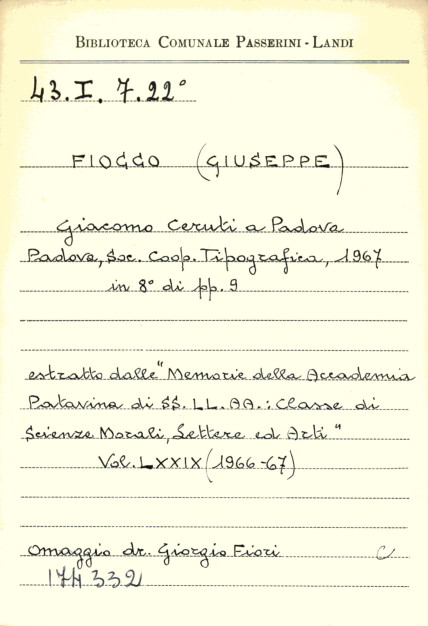 BIBLIOTECA COMUNALE PASSERINI - LANDI
43. I. 7. 22°
FIOCCO (GIUSEPPE)
Giacomo Ceruti a Padova
Padova, Soc. Coop. Tipografica, 1967
in 8° di pp. 9
estratto dalle "Memorie della Accademia
Patavina di SS. LL. AA.: Classe di
Scienze Morali, Lettere ed Arti"
Vol. LXXIX (1966-67)
Omaggio dr. Giorgio Fiori C
174332